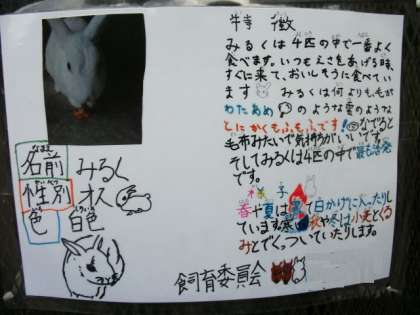 特徴
みるくは4匹の中で一番よく
食べます。いつもえさをあげる時、
すぐに来て、おいしそうに食べてい
ます みるくは何よりも、毛が
わたあめ のような雲のような
とにかくもふもふです! なでると
毛布みたいで気持ちがいいです。
そしてみるくは4匹の中で最も活発
です。
子
春や夏は 日かげに入ったりし
ています。 秋や冬は小麦とくる
みとでくっついていたりします。
名前 みるく
なまえ
性別 オス
せいべつ
色 白色
飼育委員会